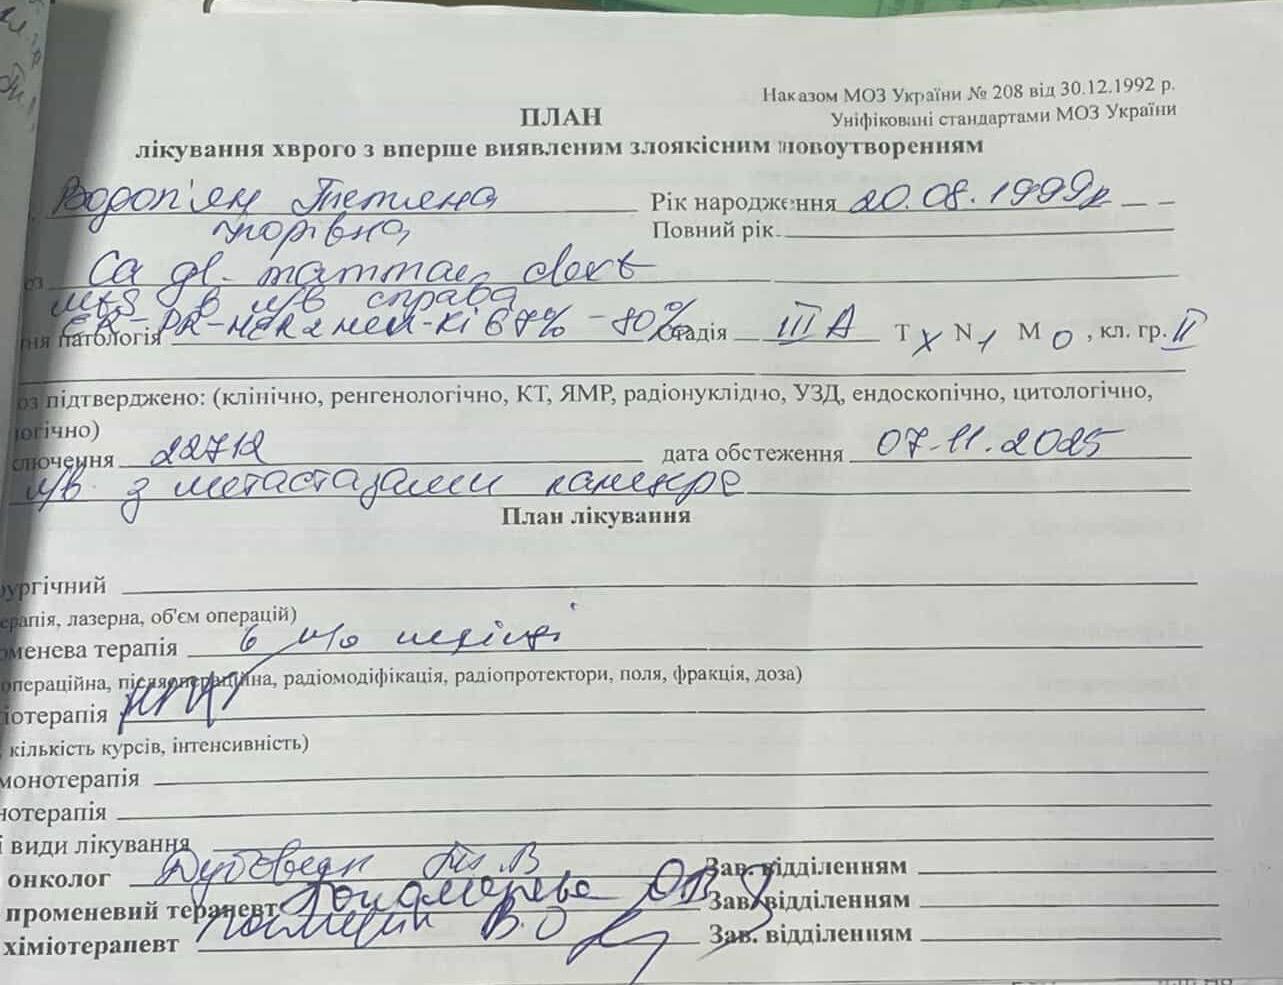 Наказом МОЗ України № 208 від 30.12.1992 р.
Уніфіковані стандартами МОЗ України
ПЛАН
лікування хврого з вперше виявленим злоякісним новоутворенням
Водоп'ян Тетяна Рік народження 20.08.1999р
Ігорівна Повний рік
оз Ca gl. mammae dext
mts в л/в справа
ER- PR- Her2 neu- Ki67% -80%
ня патологія стадія III A T x N 1 M 0 , кл. гр. II
оз підтверджено: (клінічно, ренгенологічно, КТ, ЯМР, радіонуклідно, УЗД, ендоскопічно, цитологічно,
логічно)
ключення 22712 дата обстеження 07.11.2025
л/в з метастазами
План лікування
рургічний
ерапія, лазерна, об'єм операцій)
оменева терапія
операційна, післяопераційна, радіомодифікація, радіопротектори, поля, фракція, доза)
іотерапія
, кількість курсів, інтенсивність)
монотерапія
нотерапія
і види лікування
онколог Зав. відділенням
променевий терапевт Зав. відділенням
хіміотерапевт В.О Зав. відділенням